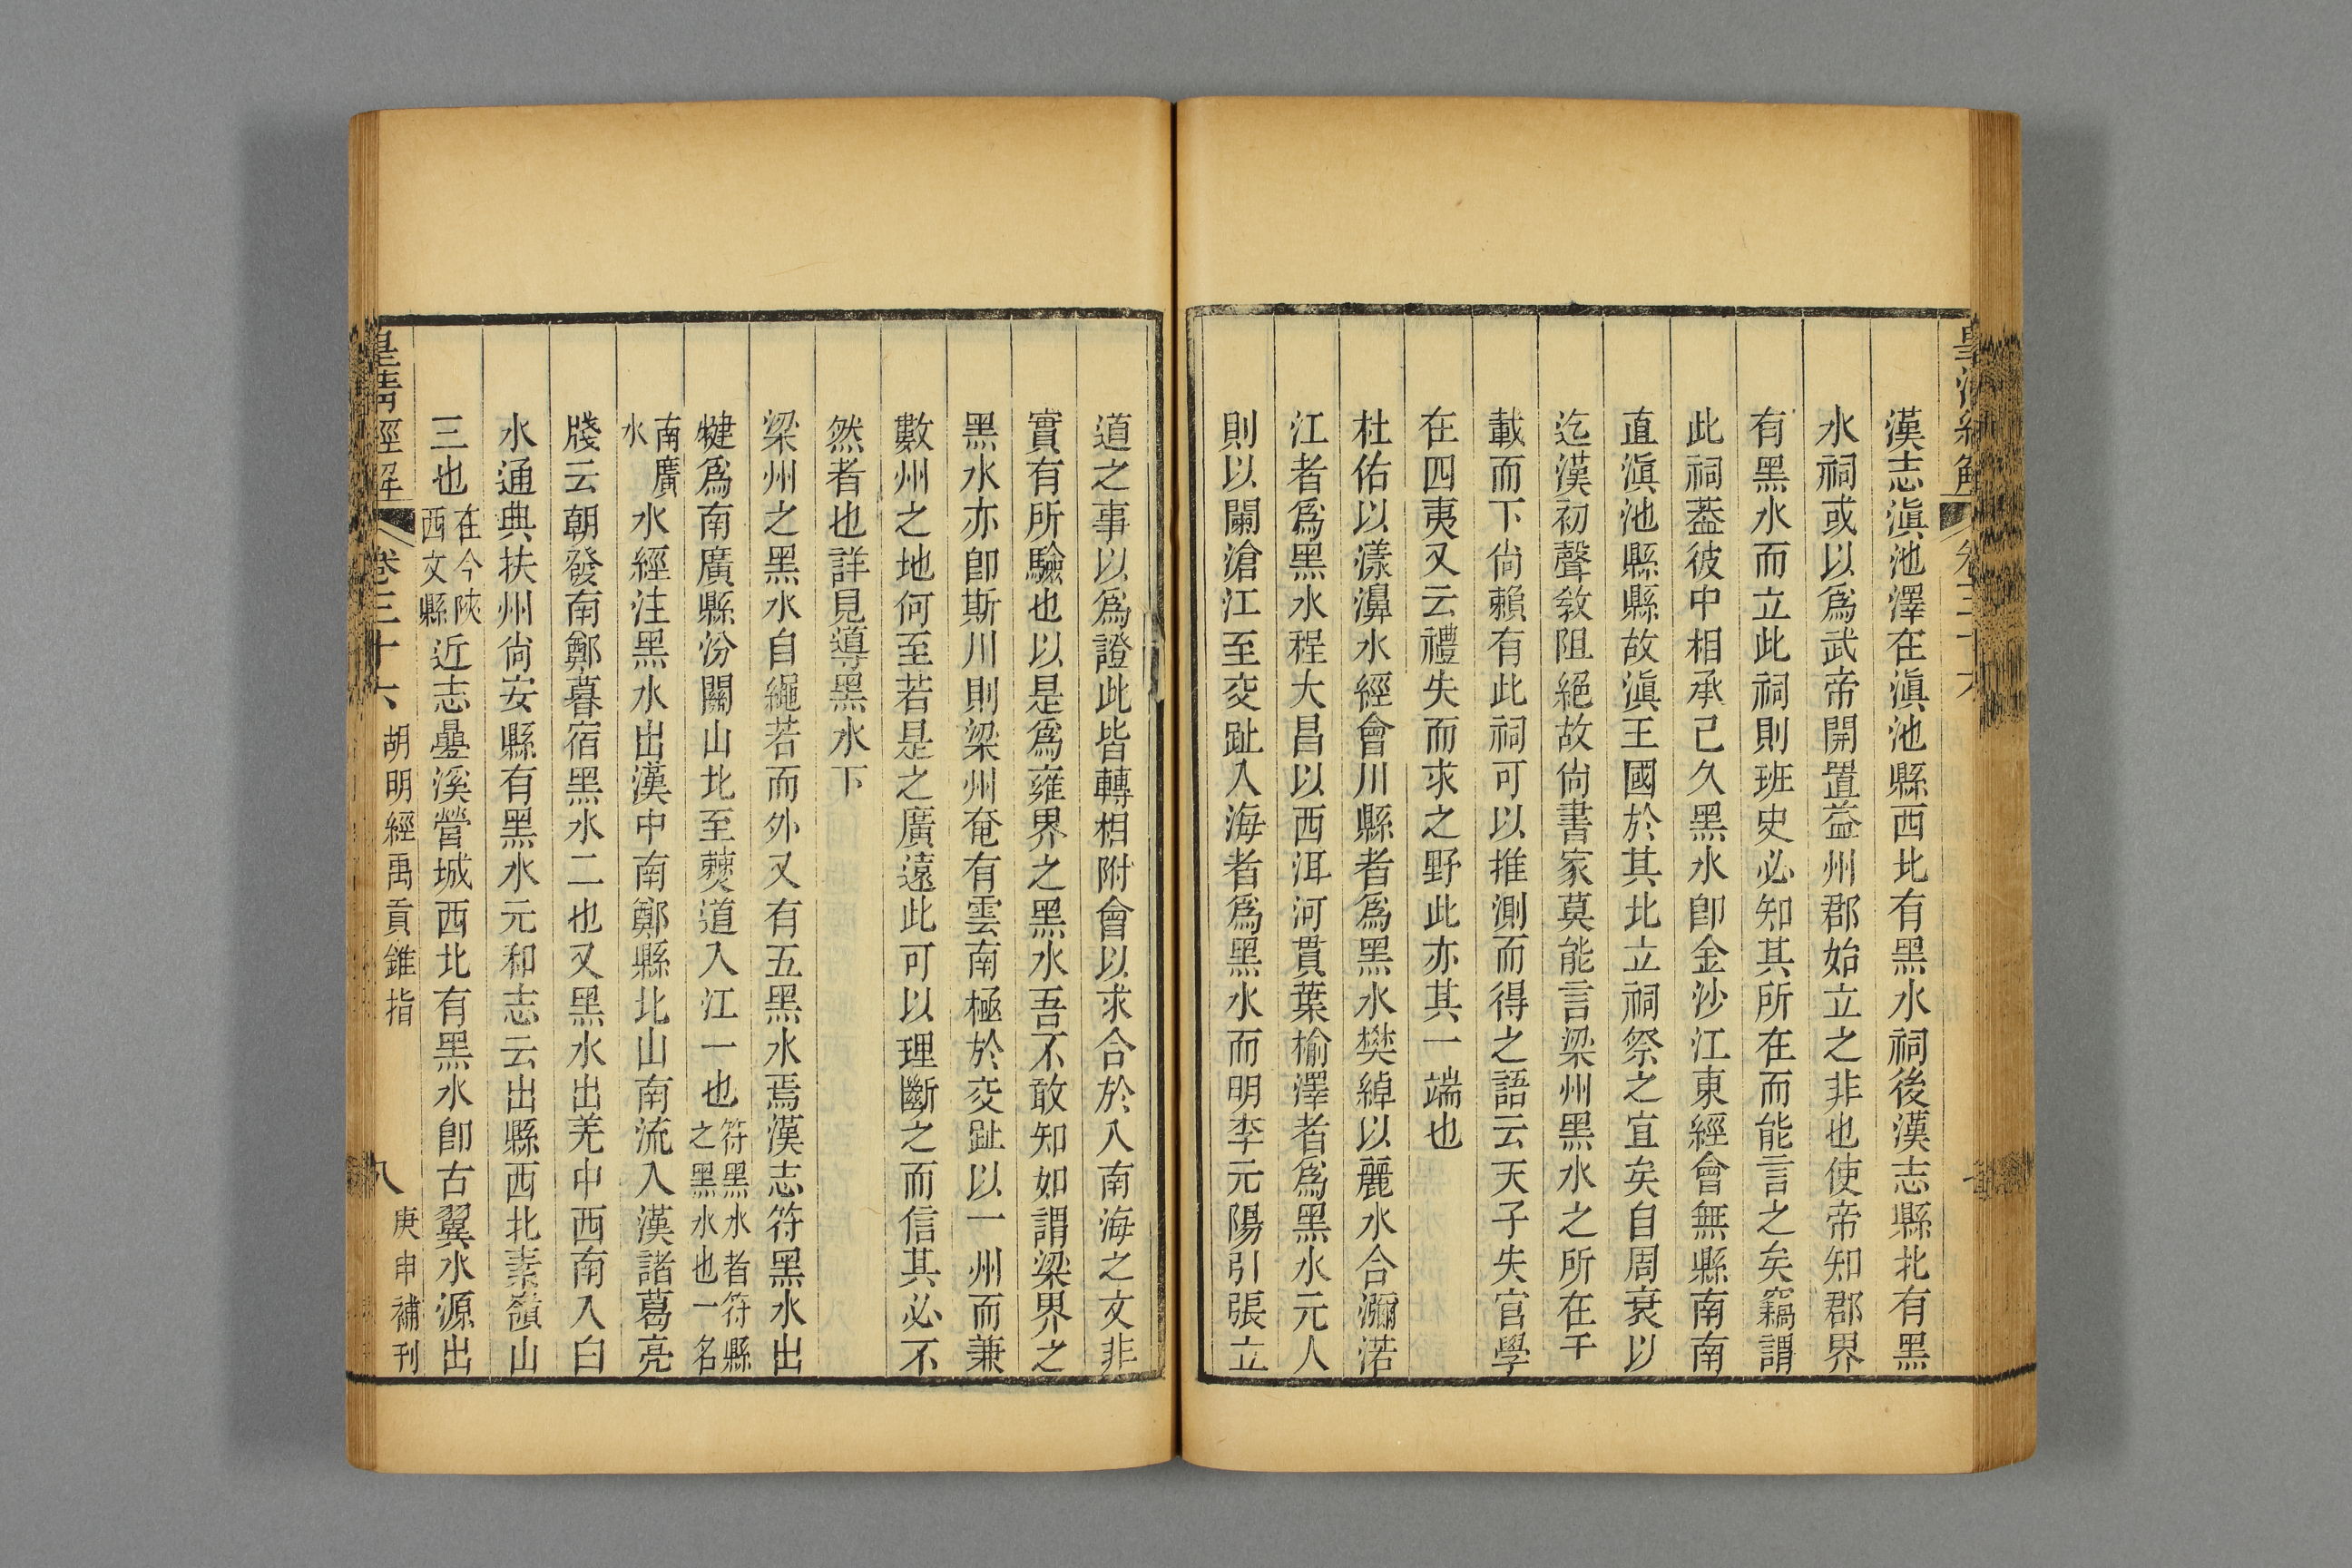 漢志滇池澤在滇池縣西北有黑水祠後漢志縣北有黑
水祠或以爲武帝開置益州郡始立之非也使帝知郡界
有黑水而立此祠則班史必知其所在而能言之矣竊謂
此祠葢彼中相承已久黑水卽金沙江東經會無縣南南
直滇池縣縣故滇王國於其北立祠祭之宜矣自周衰以
迄漢初聲敎阻絕故尙書家莫能言梁州黑水之所在千
載而下尙賴有此祠可以推測而得之語云天子失官學
在四夷又云禮失而求之野此亦其一端也
杜佑以漾濞水經會川縣者爲黑水樊綽以麗水合瀰渃
江者爲黑水程大昌以西洱河貫葉榆澤者爲黑水元人
則以闌滄江至交趾入海者爲黑水而明李元陽引張立
道之事以爲證此皆轉相附會以求合於入南海之文非
實有所驗也以是爲雍界之黑水吾不敢知如謂梁界之
黑水亦卽斯川則梁州奄有雲南極於交趾以一州而兼
數州之地何至若是之廣遠此可以理斷之而信其必不
然者也詳見導黑水下
梁州之黑水自繩若而外又有五黑水焉漢志符黑水出
犍爲南廣縣汾關山北至僰道入江一也
符黑水者符縣
之黑水也一名
南廣
水
水經注黑水出漢中南鄭縣北山南流入漢諸葛亮
牋云朝發南鄭暮宿黑水二也又黑水出羌中西南入白
水通典扶州尙安縣有黑水元和志云出縣西北素嶺山
三也
在今陝
西文縣
近志曡溪營城西北有黑水卽古翼水源出
皇清經解
卷三十六
胡明經禹貢錐指
八
庚申補刊